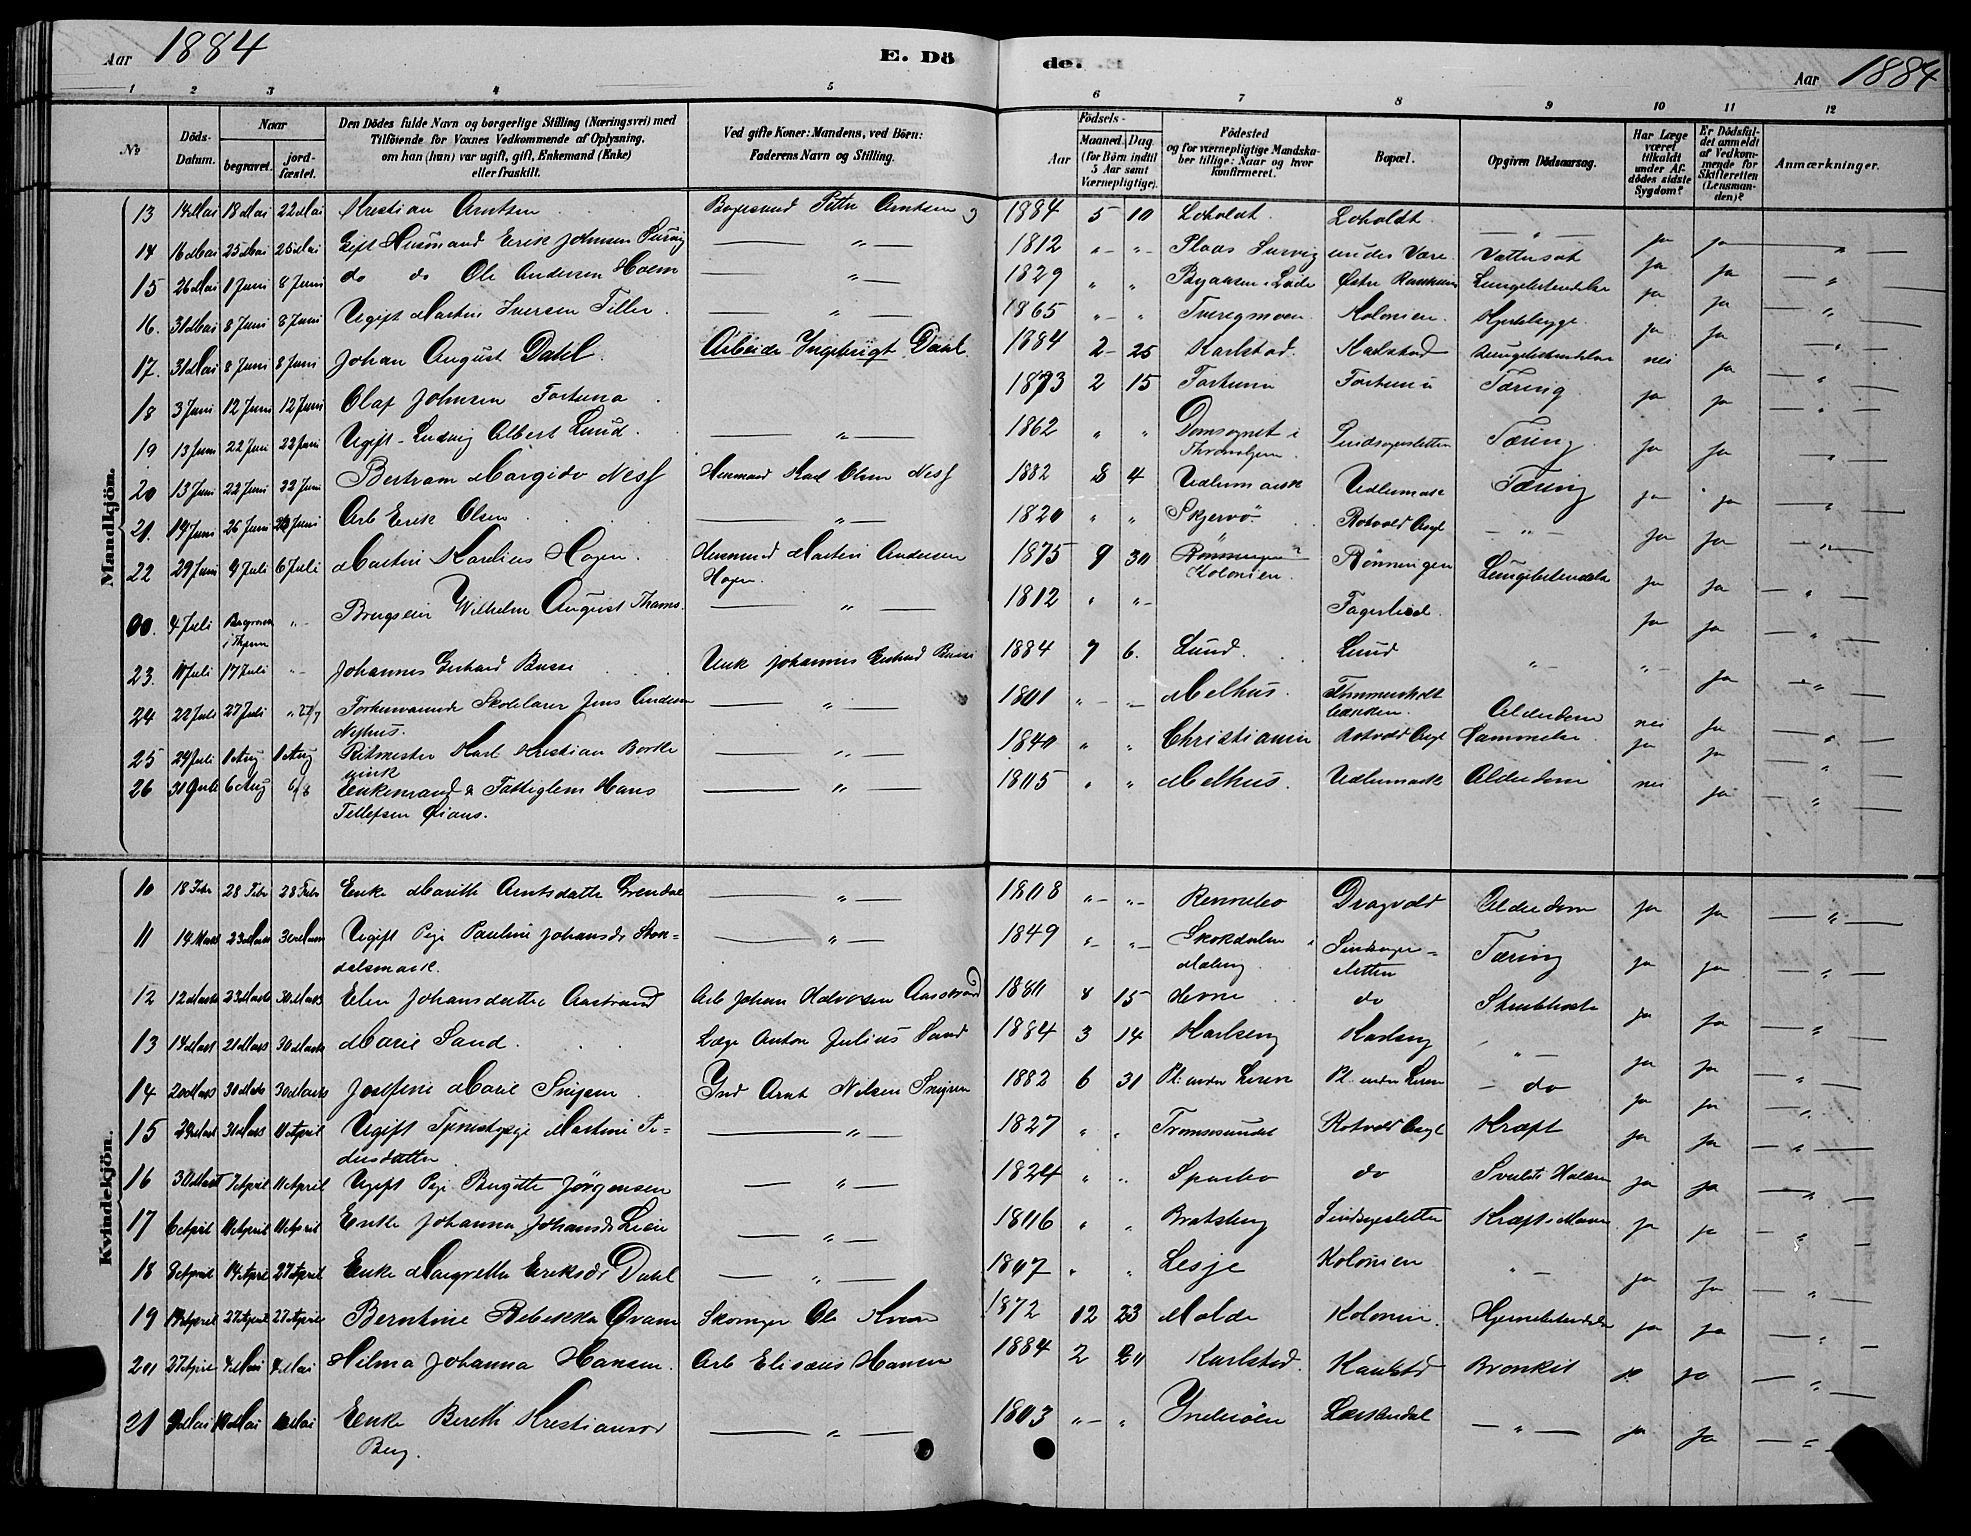 Aar 1884
E. Dö
de.
Aar 1884
1 2 3 4 5 6 7 8 9 10 11 12
No
Döds-Datum.
Naar
begravet. jordfæstet.
Den Dödes fulde Navn og borgerlige Stilling (Næringsvei) med
Tilföiende for Voxnes Vedkommende af Oplysning,
om han (hun) var ugift, gift, Enkemand (Enke)
eller fraskilt.
Ved gifte Koner: Mandens, ved Börn:
Faderens Navn og Stilling.
Födsels-
Aar Maaned. Dag
(for Börn indtil
5 Aar samt
Værnepligtige).
Födested
og for værnepligtige Mandska-
ber tillige: Naar og hvor
konfirmeret.
Bopæl.
Opgiven Dödsaarsag.
Har Læge
været
tilkaldt
under Af-
dödes sidste
Sygdom?
Er Dödsfal-
det anmeldt
af Vedkom-
mende for
Skifteretten
(Lensman-
den)?
Anmærkninger.
Mandkjön.
13 14 Mai 18 Mai 22 Mai Kristian Arntsen Petter Arntsen 1884 5 10 Loholdt Loholdt — " —
14 16 Mai 25 Mai 25 Mai Gift Husmand Erik Johnsen — " — 1812 " " Plads under Være Vattersot ja ja "
15 26 Mai 1 Juni 8 Juni do do Ole Andersen Moen — " — 1829 " " Byaasen i Lade Østre Lungebetændelse ja ja "
16. 31 Mai 8 Juni 8 Juni Ugift Martin Iversen Tiller — " — 1865 " " Kolonien. ja ja "
17. 31 Mai 8 Juni 8 Juni Johan August Dahl. Arbeider Ingebrigt Dahl. 1884 2 25 Karlstad. Karlstad Lungebetændelse nei ja "
18 3 Juni 12 Juni 12 Juni Olaf Johnsen Fortuna 1873 2 15 Fortuna Fortuna Tæring ja ja "
19 13 Juni 22 Juni 22 Juni Ugift Ludvig Albert Lund. — " — 1862 " " Domsognet i
Throndhjem. Sindsygeasletten Tæring ja ja "
20 13 Juni 22 Juni 22 Juni Bertram Margido Ness Husmand Karl Olsen Ness 1882 8 4 Udlumark Udlumark Tæring ja ja "
21. 14 Juni 26 Juni Juni Arb Erik Olsen — " — 1820 " " Skjervö Rotvold Asyl — " — ja ja "
22 29 Juni Juli 6 Juli Martin Karelius Hagen. Husmand Martin Andersen
Hagen. 1875 9 30 Rönningen?
Kolonien. Rönningen Lungebetændelse ja ja "
00. 4 Juli Begraven
i Thjem " Brugseier Wilhelm August Thams. — " — 1812 " " Fagerlied. ja ja "
23. 11 Juli 17 Juli " Johannes Gerhard Busse Johannes Gerhard Busse 1884 7 6. Lund. Lund " " ja "
24 22 Juli 27 Juli " 27/7 Forhenværende Skolelærer Jens Andersen
Nyhus. — " — 1801 " " Melhus. Alderdom nei ja "
25 24 Juli 1 Aug 1 Aug Ritmester Karl Kristian
— " — 1840 " " Christiania Rotvold Asyl ja ja "
26 31 Juli 6 Aug 6/8 Enkemand & Fattiglem Hans
Tellefsen — " — 1805 " " Melhus. Udlumark Alderdom nei ja "
Kvindekjön.
10 18 Febr 28 Febr 28 Febr Enke Marith Arntsdatter — " — 1808 " " Rennebo Dragvold Alderdom ja ja "
11 14 Mars 23 Mars 30 Mars Ugift Pige Pauline Johansdr Stok-
dalsmark. — " — 1849 " " Stokdalen
Malvig Sindsyge-
sletten Tæring ja ja "
12 12 Mars 23 Mars 30 Mars Elen Johansdatter Aastrand Arb Johan Halvorsen Aastrand 1880 8 15 Hevne do Strubehoste ja ja "
13 14 Mars 21 Mars 30 Mars Marie Sand. Læge Anton Julius Sand 1884 3 14 Karlseng Karlseng " ja ja "
14 20 Mars 30 Mars 30 Mars Josefine Marie Arnt Nilsen 1882 6 31 Pl. under Leren Pl. under Leren — do ja ja "
15 29 Mars 31 Mars 11 April Ugift Tjenestepige Martine Pe-
dersdatter — " — 1827 " " Tromsesundet Rotvold Asyl Kræft ja ja "
16 30 Mars 7 April 11 April Ugift Pige Birgitte Jörgensen — " — 1824 " " Sparbo do ja ja "
17 6 April 11 April 11 April Enke Johanna Johansdr — " — 1806 " " Bratsberg Sindsygesletten Kræft i Maven ja ja "
18 8 April 14 April 27 April Enke Margrethe Eriksdr Dahl — " — 1807 " " Lesje Kolonien " ja ja "
19 19 April 27 April 27 April Berntine Rebekka Qvam Skomager Ole Kvam 1872 12 23 Molde Kolonien. Hjernebetændelse ja ja "
20 27 April 4 Mai 4 Mai Hilma Johanna Hansen. Arb Elisæus Hansen 1884 2 20 Karlstad. Karlstad Bronkit ja ja "
21 Mai Mai Mai Enke Bereth Kristiansdr
Berg. — " — 1803 " " Inderöen — " — ja ja "